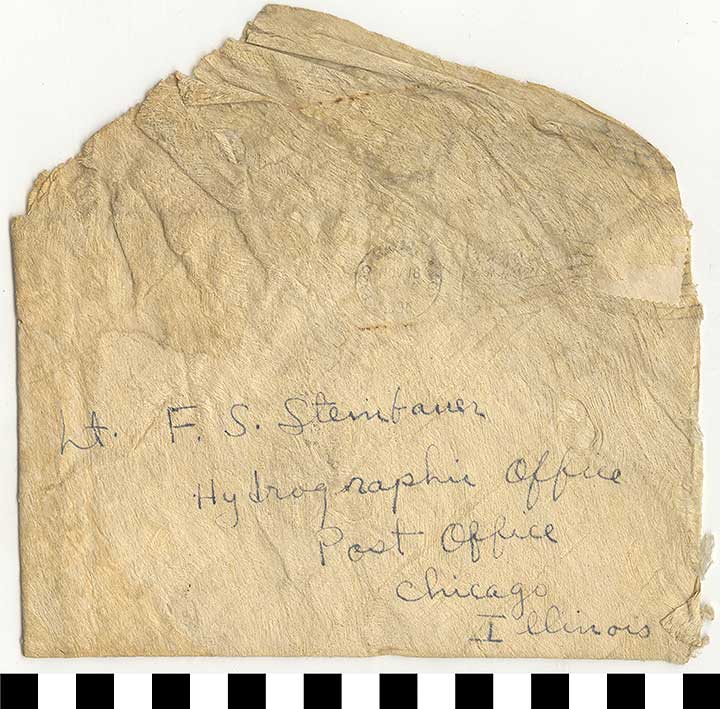 Lt. F. S. Steinbauer
Hydrographic Office
Post Office
Chicago
Illinois